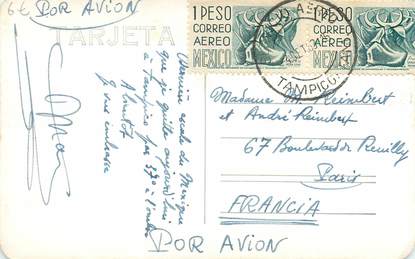 6e POR AVION
TARJETA
1 PESO
CORREO
AEREO
MEXICO
1 PESO
CORREO
AEREO
MEXICO
TAMPICO
Dernière escale du Mexique
que je quitte aujourd'hui
à Tampico par 37° à l'ombre
A bientôt
Je vous embrasse
Madame M. Reimbert
et André Reimbert
67 Boulevard de Reuilly
Paris
FRANCIA
POR AVION